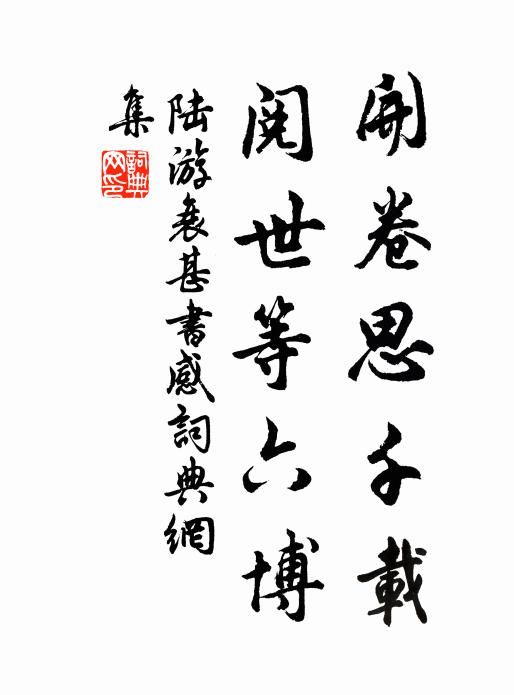 開卷思千載
閱世等六博
陸游衰甚書感詞典網
集
詞典
网印